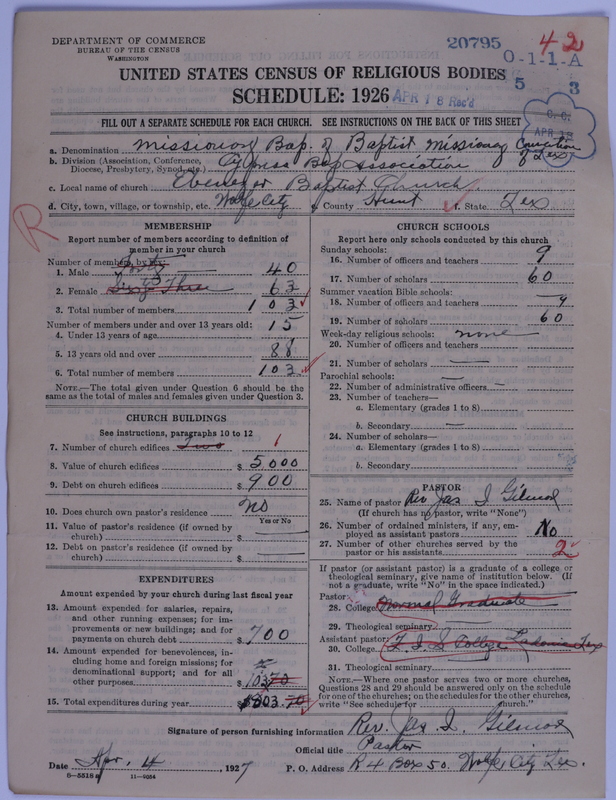 DEPARTMENT OF COMMERCE
BUREAU OF THE CENSUS
WASHINGTON
20795
42
O-1-1-A
5 3
UNITED STATES CENSUS OF RELIGIOUS BODIES
SCHEDULE: 1926
APR 18 Rec'd
FILL OUT A SEPARATE SCHEDULE FOR EACH CHURCH. SEE INSTRUCTIONS ON THE BACK OF THIS SHEET
a. Denomination Missionary Bap. of Baptist Missionary
b. Division (Association, Conference, Diocese, Presbytery, Synod, etc.) Cypress Bap Association of Tex
c. Local name of church Ebenezer Baptist Church
d. City, town, village, or township, etc. Wolfe City e. County Hunt f. State Tex
R
MEMBERSHIP
Report number of members according to definition of
member in your church
Number of members by sex:
1. Male Forty 40
2. Female Sixty Three 63
3. Total number of members 103
Number of members under and over 13 years old:
4. Under 13 years of age 15
5. 13 years old and over 88
6. Total number of members 103
NOTE.—The total given under Question 6 should be the
same as the total of males and females given under Question 3.
CHURCH BUILDINGS
See instructions, paragraphs 10 to 12
7. Number of church edifices Two 1
8. Value of church edifices $ 5,000
9. Debt on church edifices $ 900
10. Does church own pastor's residence No
Yes or No
11. Value of pastor's residence (if owned by
church) $
12. Debt on pastor's residence (if owned by
church) $
EXPENDITURES
Amount expended by your church during last fiscal year
13. Amount expended for salaries, repairs,
and other running expenses; for im-
provements or new buildings; and for
payments on church debt $ 700
14. Amount expended for benevolences, in-
cluding home and foreign missions; for
denominational support; and for all
other purposes $ 103
15. Total expenditures during year $ 803.70
CHURCH SCHOOLS
Report here only schools conducted by this church
Sunday schools:
16. Number of officers and teachers 9
17. Number of scholars 60
Summer vacation Bible schools:
18. Number of officers and teachers 9
19. Number of scholars 60
Week-day religious schools: none
20. Number of officers and teachers
21. Number of scholars
Parochial schools:
22. Number of administrative officers
23. Number of teachers—
a. Elementary (grades 1 to 8)
b. Secondary
24. Number of scholars—
a. Elementary (grades 1 to 8)
b. Secondary
PASTOR
25. Name of pastor Rev Jas I Gilmor
(If church has no pastor, write "None")
26. Number of ordained ministers, if any, em-
ployed as assistant pastors No
27. Number of other churches served by the
pastor or his assistants 2
If pastor (or assistant pastor) is a graduate of a college or
theological seminary, give name of institution below. (If
not a graduate, write "No" in the space indicated.)
Pastor:
28. College Normal Graduate
29. Theological seminary
Assistant pastor:
30. College Ladonia Tex
31. Theological seminary
NOTE.—Where one pastor serves two or more churches,
Questions 28 and 29 should be answered only on the schedule
for one of the churches; on the schedules for the other churches,
write "See schedule for church."
Signature of person furnishing information Rev. Jas I. Gilmor
Official title Pastor
Date Apr. 4, 1927 P. O. Address R 4 Box 50. Wolfe City Tex.
8—5518a 11—9094